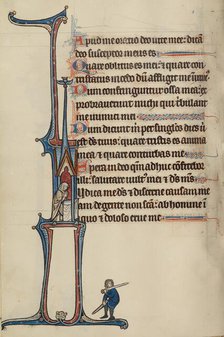 Apud me oratio deo vite mee: dicā
deo susceptor meus es
Quare oblitus es mei: ⁊ quare con
tristatus incedo dū affligit me inimic⁹
Dum confringuntur ossa mea: ex
probraverunt michi qui tribulant
me inimici mei
Dum dicunt michi per singulos dies ubi
est deus tuus: quare tristis es anima
mea ⁊ quare conturbas me
Spera in deo qm̄ adhuc cōfitebor
illi: salutare vultus mei ⁊ ds̄ ms̄
Iudica me ds̄ ⁊ discerne causam meam
de gente non sc̄a: ab homine ini
quo ⁊ doloso erue me